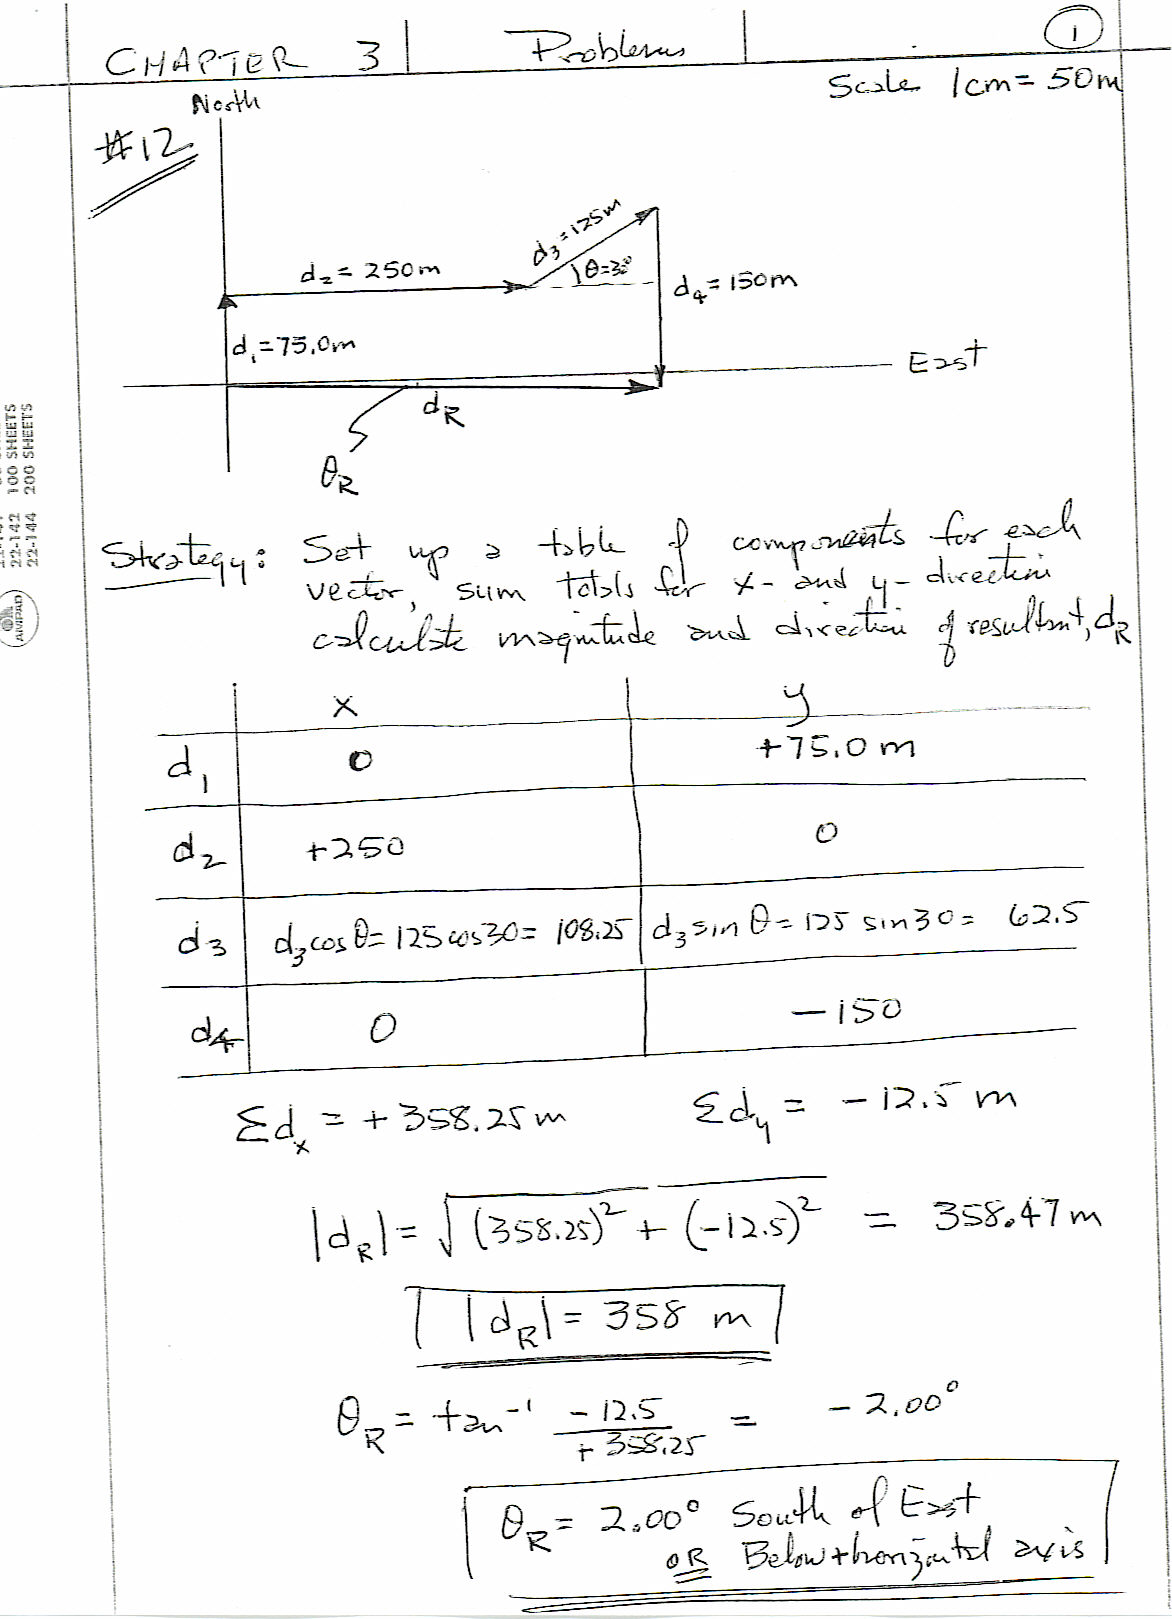 CHAPTER 3 Problems 1
Scale 1cm = 50m
North
#12
d3 = 125m
θ=30°
d2 = 250m
d4 = 150m
d1 = 75.0m
East
dR
θR
22-142 100 SHEETS
22-144 200 SHEETS
AMPAD
Strategy: Set up a table of components for each
vector, sum totals for x- and y- direction
calculate magnitude and direction of resultant, dR
x y
d1 0 +75.0 m
d2 +250 0
d3 d3 cos θ = 125 cos 30 = 108.25 d3 sin θ = 125 sin 30 = 62.5
d4 0 -150
Σdx = +358.25 m Σdy = -12.5 m
|dR| = √(358.25)² + (-12.5)² = 358.47 m
|dR| = 358 m
θR = tan⁻¹ -12.5 / +358.25 = -2.00°
θR = 2.00° South of East
OR Below + horizontal axis